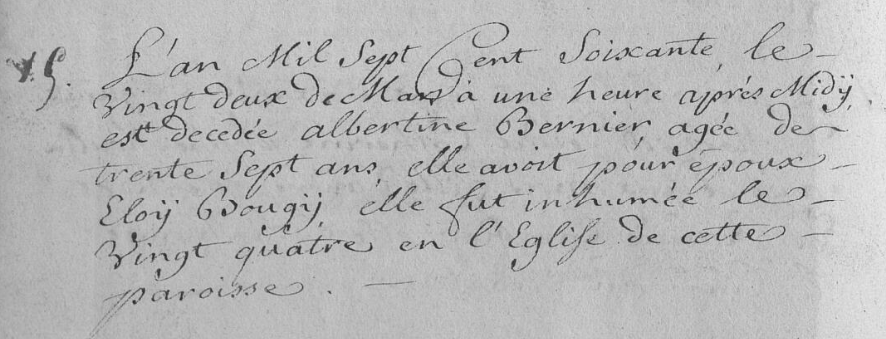 5. L'an Mil Sept Cent Soixante, le
Vingt deux de Mars à une heure après Midÿ
est decedée albertine Bernier, agée de
trente Sept ans, elle avoit pour époux
Eloÿ Bougÿ elle fut inhumée le
Vingt quatre en l'Eglise de cette
paroisse. —